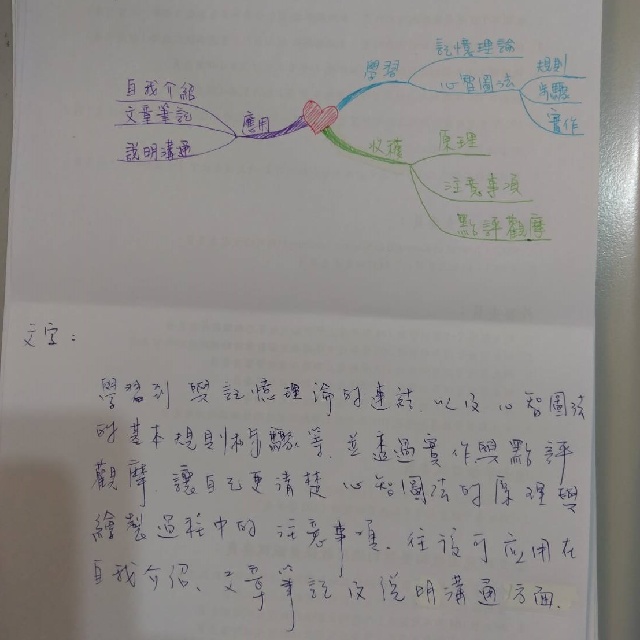 學習
記憶理論
心智圖法
規則
步驟
實作
收穫
原理
注意事項
點評觀摩
應用
自我介紹
文章筆記
說明溝通
文字：
學習到與記憶理論的連結、以及心智圖法
的基本規則與步驟等、並透過實作與點評
觀摩、讓自己更清楚心智圖法的原理與
繪製過程中的注意事項、往後可应用在
自我介紹、文章筆記及說明溝通方面.